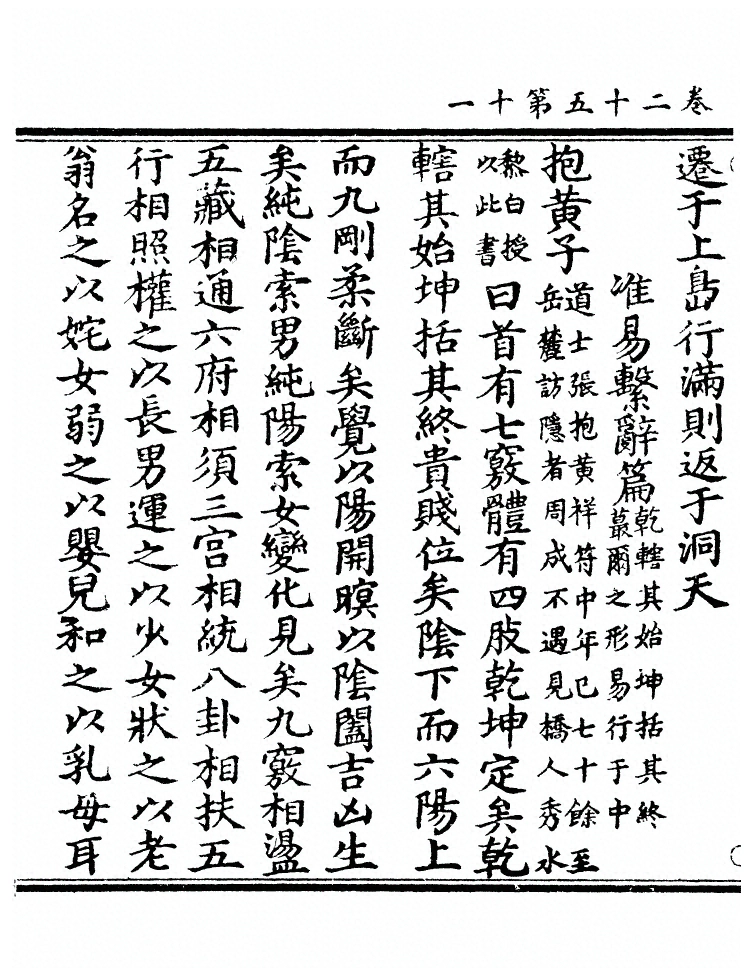 卷二十五第十一
遷于上島行滿則返于洞天
准易繫辭篇乾轄其始坤括其終
蕞爾之形易行于中
抱黃子道士張抱黃祥符中年已七十餘至
岳麓訪隱者周成不遇見橋人秀水
黎白授
以此書曰首有七竅體有四肢乾坤定矣乾
轄其始坤括其終貴賤位矣陰下而六陽上
而九剛柔斷矣覺以陽開暝以陰闔吉凶生
矣純陰索男純陽索女變化見矣九竅相盪
五藏相通六府相須三宮相統八卦相扶五
行相照權之以長男運之以少女狀之以老
翁名之以姹女弱之以嬰兒和之以乳母耳